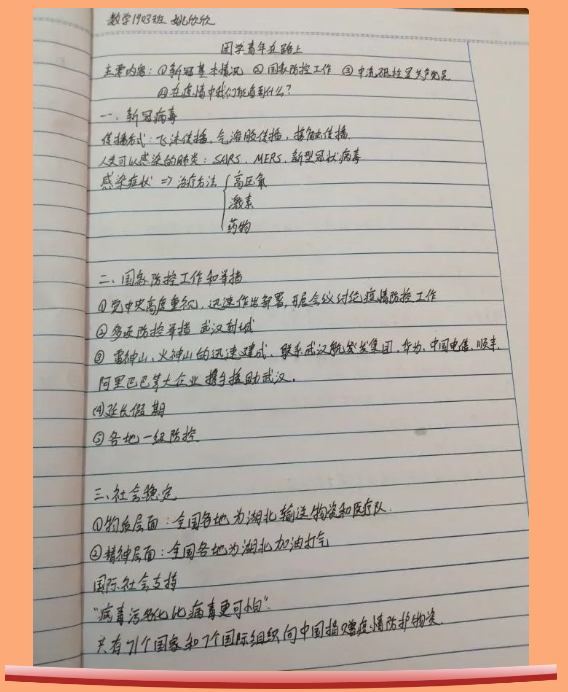 数学1903班 姚欣欣
团学青年在路上
主要内容：①新冠基本情况 ②国家防控工作 ③中流砥柱是共产党员
④在疫情中我们能看到什么？
一、新冠病毒
传播方式：飞沫传播、气溶胶传播，接触传播
人类可以感染的肺炎：SARS、MERS、新型冠状病毒
感染症状 => 治疗方法 { 高压氧
激素
药物
二、国家防控工作和举措
①党中央高度重视，迅速作出部署，开启会议讨论疫情防控工作
②多项防控举措 武汉封城
③雷神山、火神山的迅速建成，联系武汉航发集团、华为、中国电信、顺丰、
阿里巴巴等大企业携手援助武汉。
(4)延长假期
⑤各地一级防控
三、社会稳定
①物质层面：全国各地为湖北输送物资和医疗队
②精神层面：全国各地为湖北加油打气
国际社会支持
"病毒污名化比病毒更可怕"
共有71个国家和7个国际组织向中国捐赠疫情防护物资